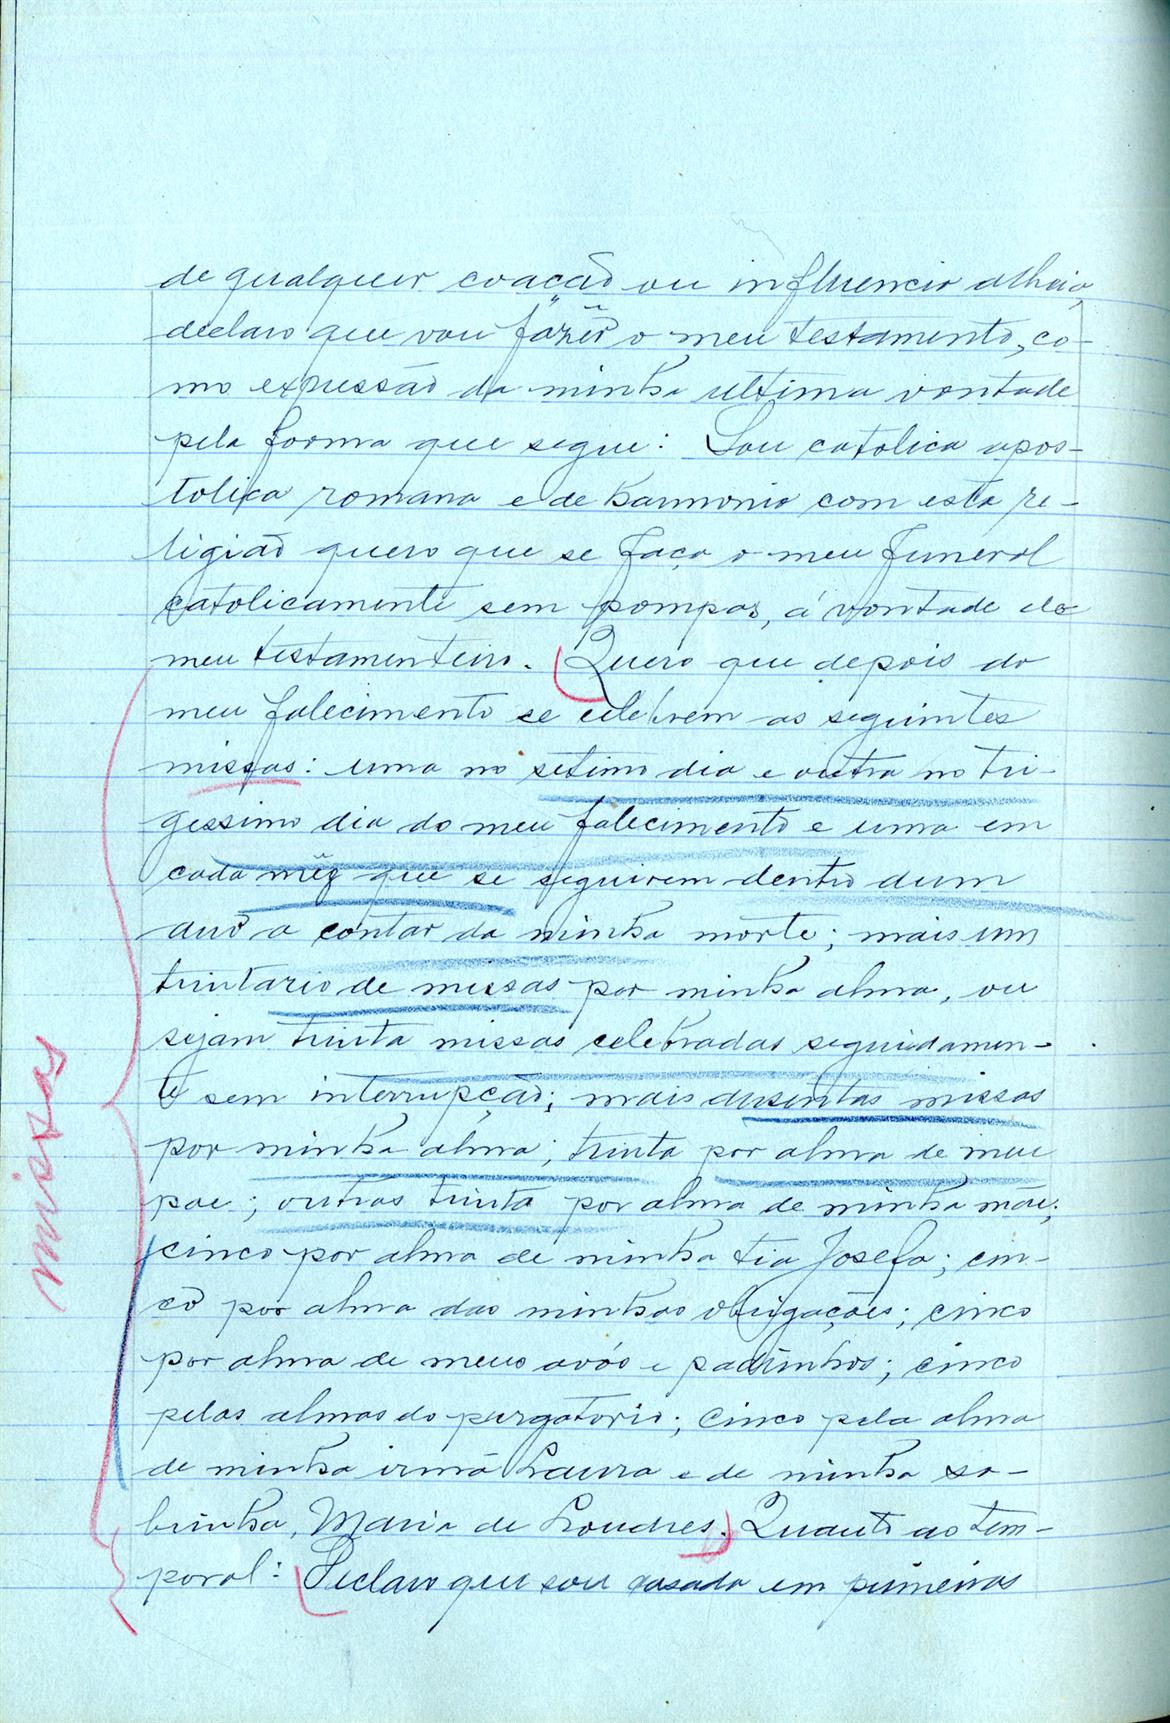 de qualquer coação ou influencia alheia,
declaro que vou fazêr o meu testamento, co-
mo expressão da minha ultima vontade
pela forma que segue: Sou catolica apos-
tolica romana e de harmonia com esta re-
ligião quero que se faça o meu funeral
catolicamente sem pompas, á vontade do
meu testamenteiro. Quero que depois do
meu falecimento se celebrem as seguintes
missas: uma no setimo dia e outra no tri-
gessimo dia do meu falecimento e uma em
cada mêz que se seguirem dentro dum
ano a contar da minha morte; mais um
trintario de missas por minha alma, ou
sejam trinta missas celebradas seguidamen-
te sem interrupção; mais dusentas missas
por minha alma; trinta por alma de meu
pae; outras trinta por alma de minha mãe;
cinco por alma de minha tia Josefa; cin-
co por alma das minhas obrigações; cinco
por alma de meus avós e padrinhos; cinco
pelas almas do purgatorio; cinco pela alma
de minha irmã Laura e de minha so-
brinha, Maria de Lourdes. Quanto ao tem-
poral: Declaro que sou casada em primeiras
missas